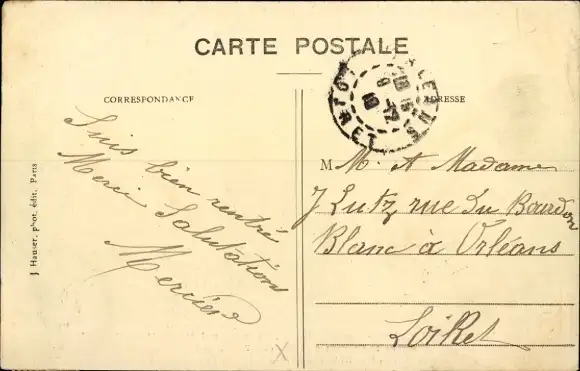 CARTE POSTALE
CORRESPONDANCE
ADRESSE
Suis bien rentré
Merci Salutations
Mercier
M M. et Madame
J Lutz, rue du Bourdon
Blanc à Orléans
Loiret
J. Hauser, phot. édit. Paris
ORLEANS
LOIRET